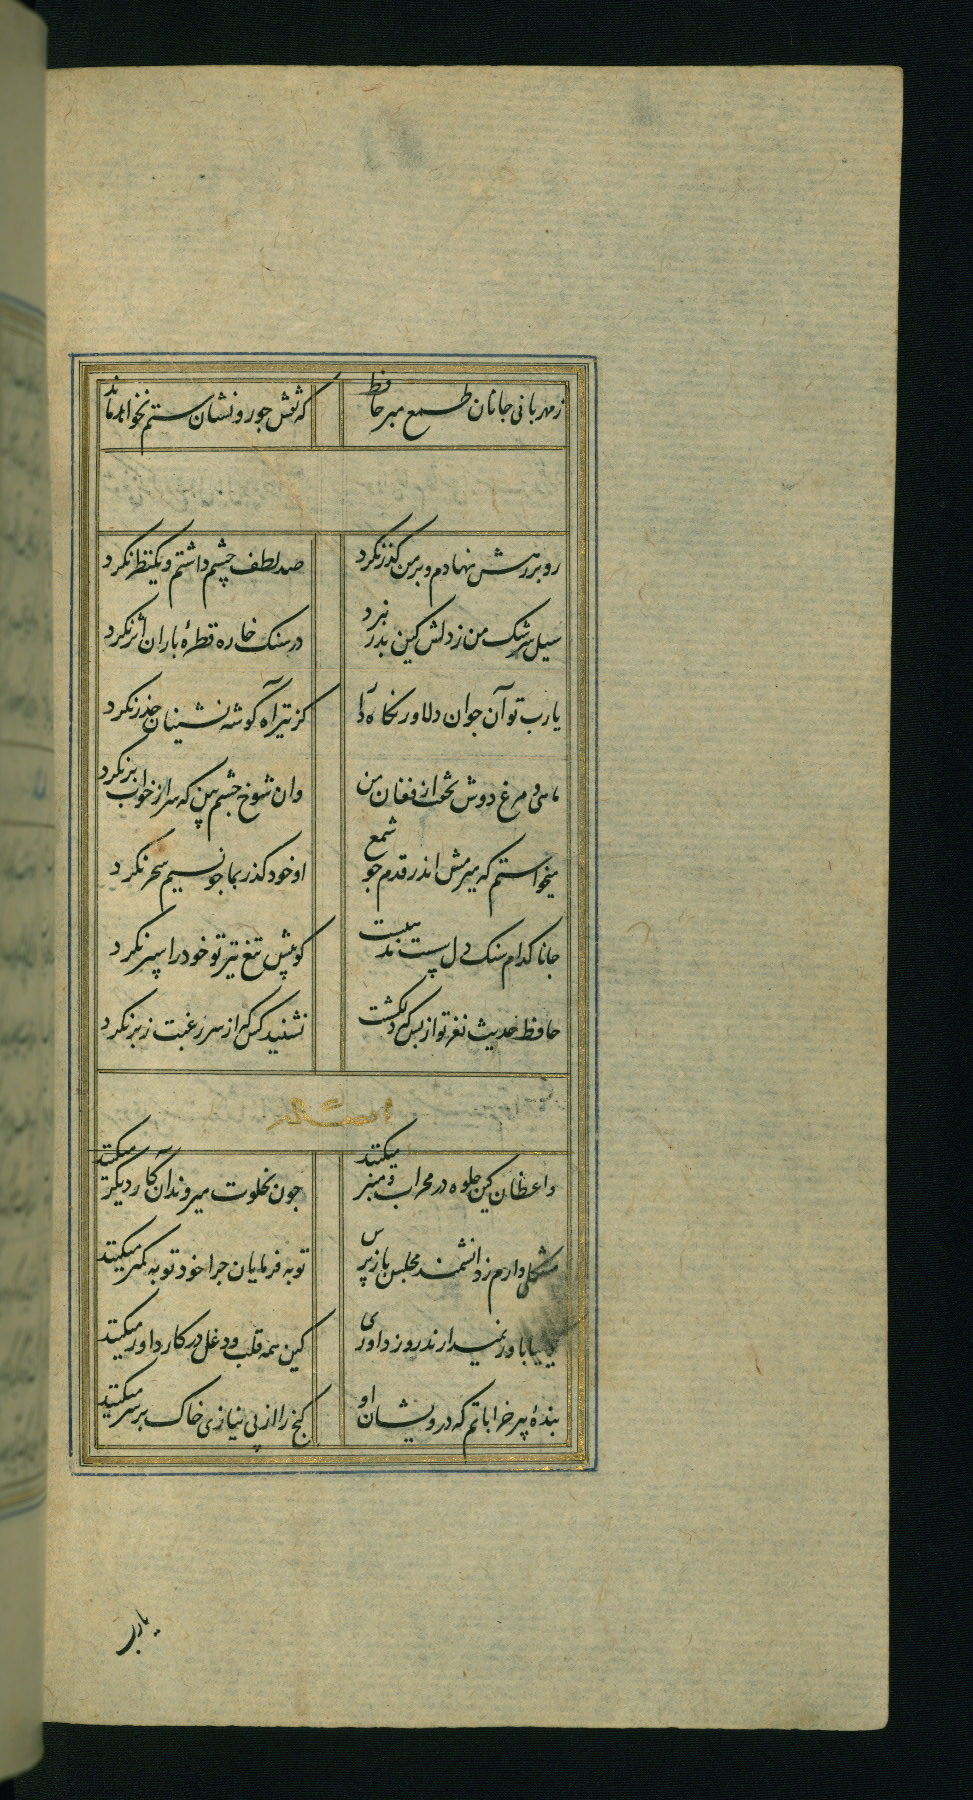 ز مهربانی جانان طمع مبر حافظ
که نقش جور و نشان ستم نخواهد ماند
رو بر رهش نهادم و بر من گذر نکرد
صد لطف چشم داشتم و یکنظر نکرد
سیل سرشک من ز دلش کین بدر نبرد
در سنک خاره قطرهٔ باران اثر نکرد
یارب تو آن جوان دلاور نکاه دار
کز تیر آه گوشه نشینان حذر نکرد
ماهی و مرغ دوش نخفت از فغان من
وان شوخ چشم بین که سر از خواب بر نکرد
میخواستم که میرمش اندر قدم جو شمع
او خود کذر بما جو نسیم سحر نکرد
جانا کدام سنک دل
کو پیش تیغ تیز تو خود را سپر نکرد
حافظ حدیث نغز تو از بس که دلکشت
نشنید کس که از سر رغبت ز بر نکرد
واعظان کین جلوه در محراب و منبر میکنند
جون بخلوت میروند آن کار دیگر میکنند
مشکلی دارم ز دانشمند مجلس باز پرس
توبه فرمایان جرا خود توبه کمتر میکنند
باور نمیدارند روز داوری
کین همه قلب و دغل در کار داور میکنند
بندهٔ پیر خراباتم که درویشان او
کنج را از بی نیازی خاک بر سر میکنند
یارب